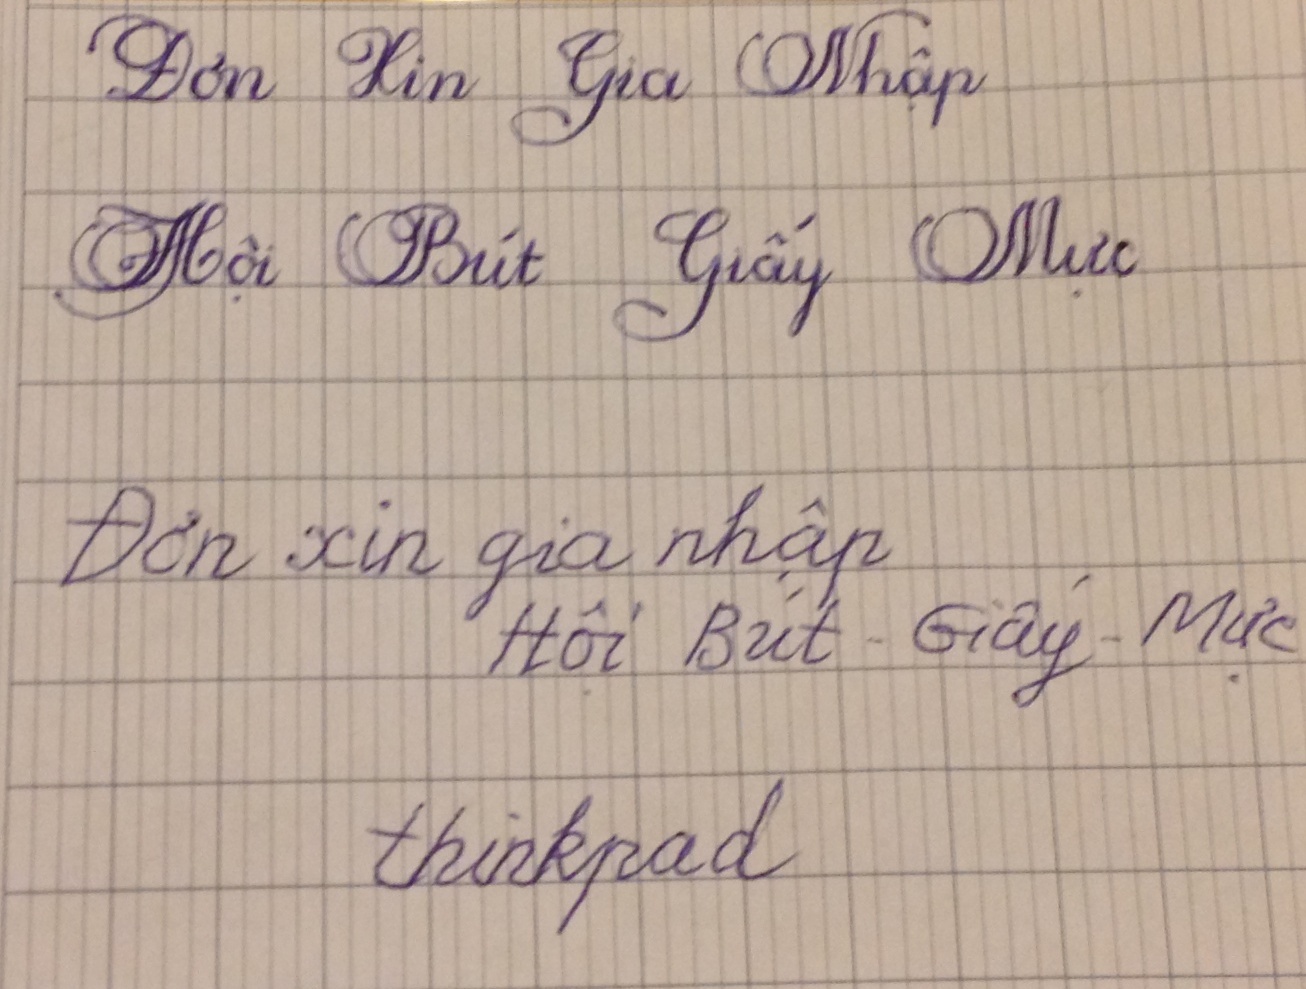 Đơn Xin Gia Nhập
Hội Bút Giấy Mực
Đơn xin gia nhập
Hội Bút - Giấy - Mực
thinkpad